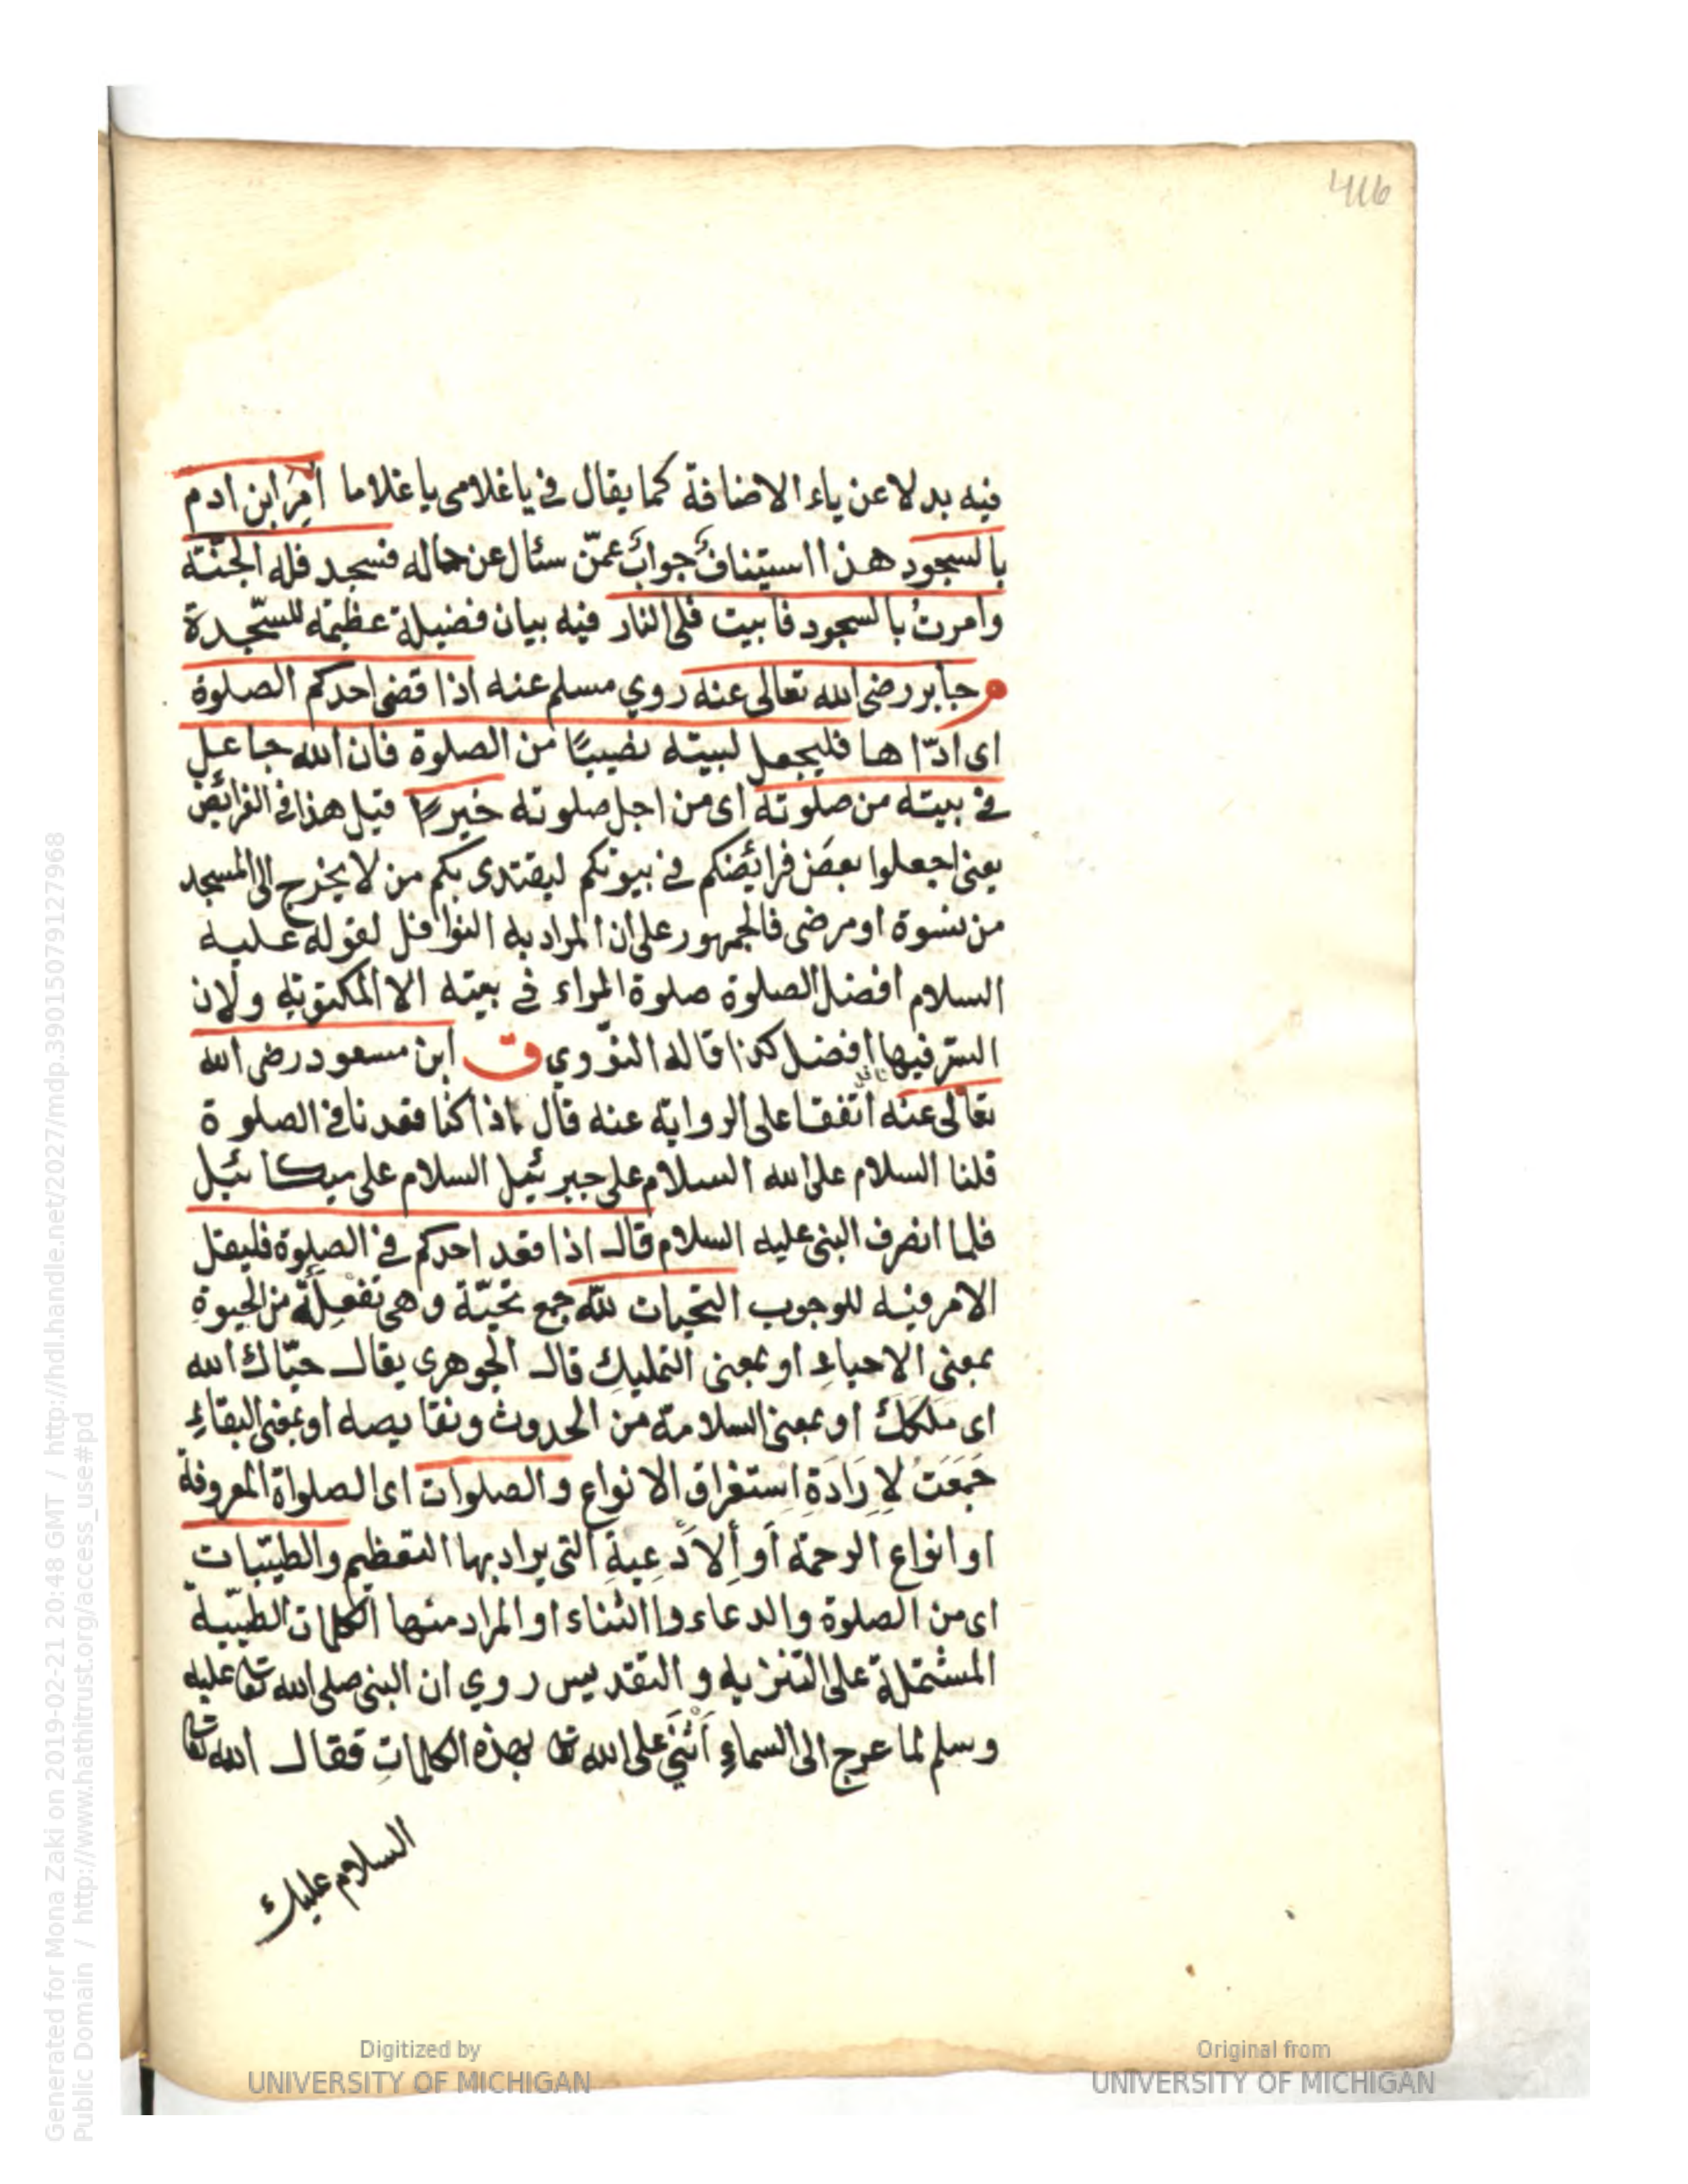 416
فيه بدلا عن ياء الاضافة كما يقال في ياغلامى ياغلاما اُمِرَ ابن ادم
بالسجود هذا استيناف جواب عمّن سئال عن حاله فسجد فله الجنّته
وامرتُ بالسجود فابيت فلى النار فيه بيان فضيلة عظيمة للسّجدة
م جابر رضى الله تعالى عنه روي مسلم عنه اذا قضى احدكم الصلوة
اى ادّاها فليجعل لبيته نصيبًا من الصلوة فان الله جاعل
في بيته من صلوته اى من اجل صلوته خيرًا قيل هذا في الفرائض
يعنى اجعلوا بعض فرائضكم في بيوتكم ليقتدى بكم من لا يخرج الى المسجد
من نسوة او مرضى فالجمهور على ان المراد به النوافل لقوله عليه
السلام افضل الصلوة صلوة المراء في بيته الا المكتوبة ولان
السّر فيها افضل كذا قاله النوّوي ق ابن مسعود رضى الله
تعالى عنه اتّفقا على الرواية عنه قال اذا كنا قعدنا في الصلوة
قلنا السلام على الله السلام على جبرئيل السلام على ميكائيل
فلما انصرف النبى عليه السلام قال اذا قعد احدكم في الصلوة فليقل
الامر فيه للوجوب التحيات لله جمع تحيّة وهى تفعِلَة من الحيوة
بمعنى الاحياء او بمعنى التمليك قال الجوهرى يقال حيّاك الله
اى ملكك او بمعنى السلامة من الحدوث ونقايصه او بمعنى البقاءِ
جمعت لاِرَادَة اِستغراق الانواع والصلوات اى الصلواة المعروفة
او انواع الرحمة أو أَلادعية التى يراد بها التعظيم والطيّبات
اى من الصلوة والدعاء والثناء او المراد منها الكلمات الطيّبة
المشتملة على التنزيه والتقديس روي ان النبى صلى الله تعا عليه
وسلم لما عرج الى السماءِ أثنى على الله تعا بهذه الكلمات فقال الله تعا
السلام عليك
Generated for Mona Zaki on 2019-02-21 20:48 GMT / http://hdl.handle.net/2027/mdp.39015079127968
Public Domain / http://www.hathitrust.org/access_use#pd
Digitized by
UNIVERSITY OF MICHIGAN
Original from
UNIVERSITY OF MICHIGAN